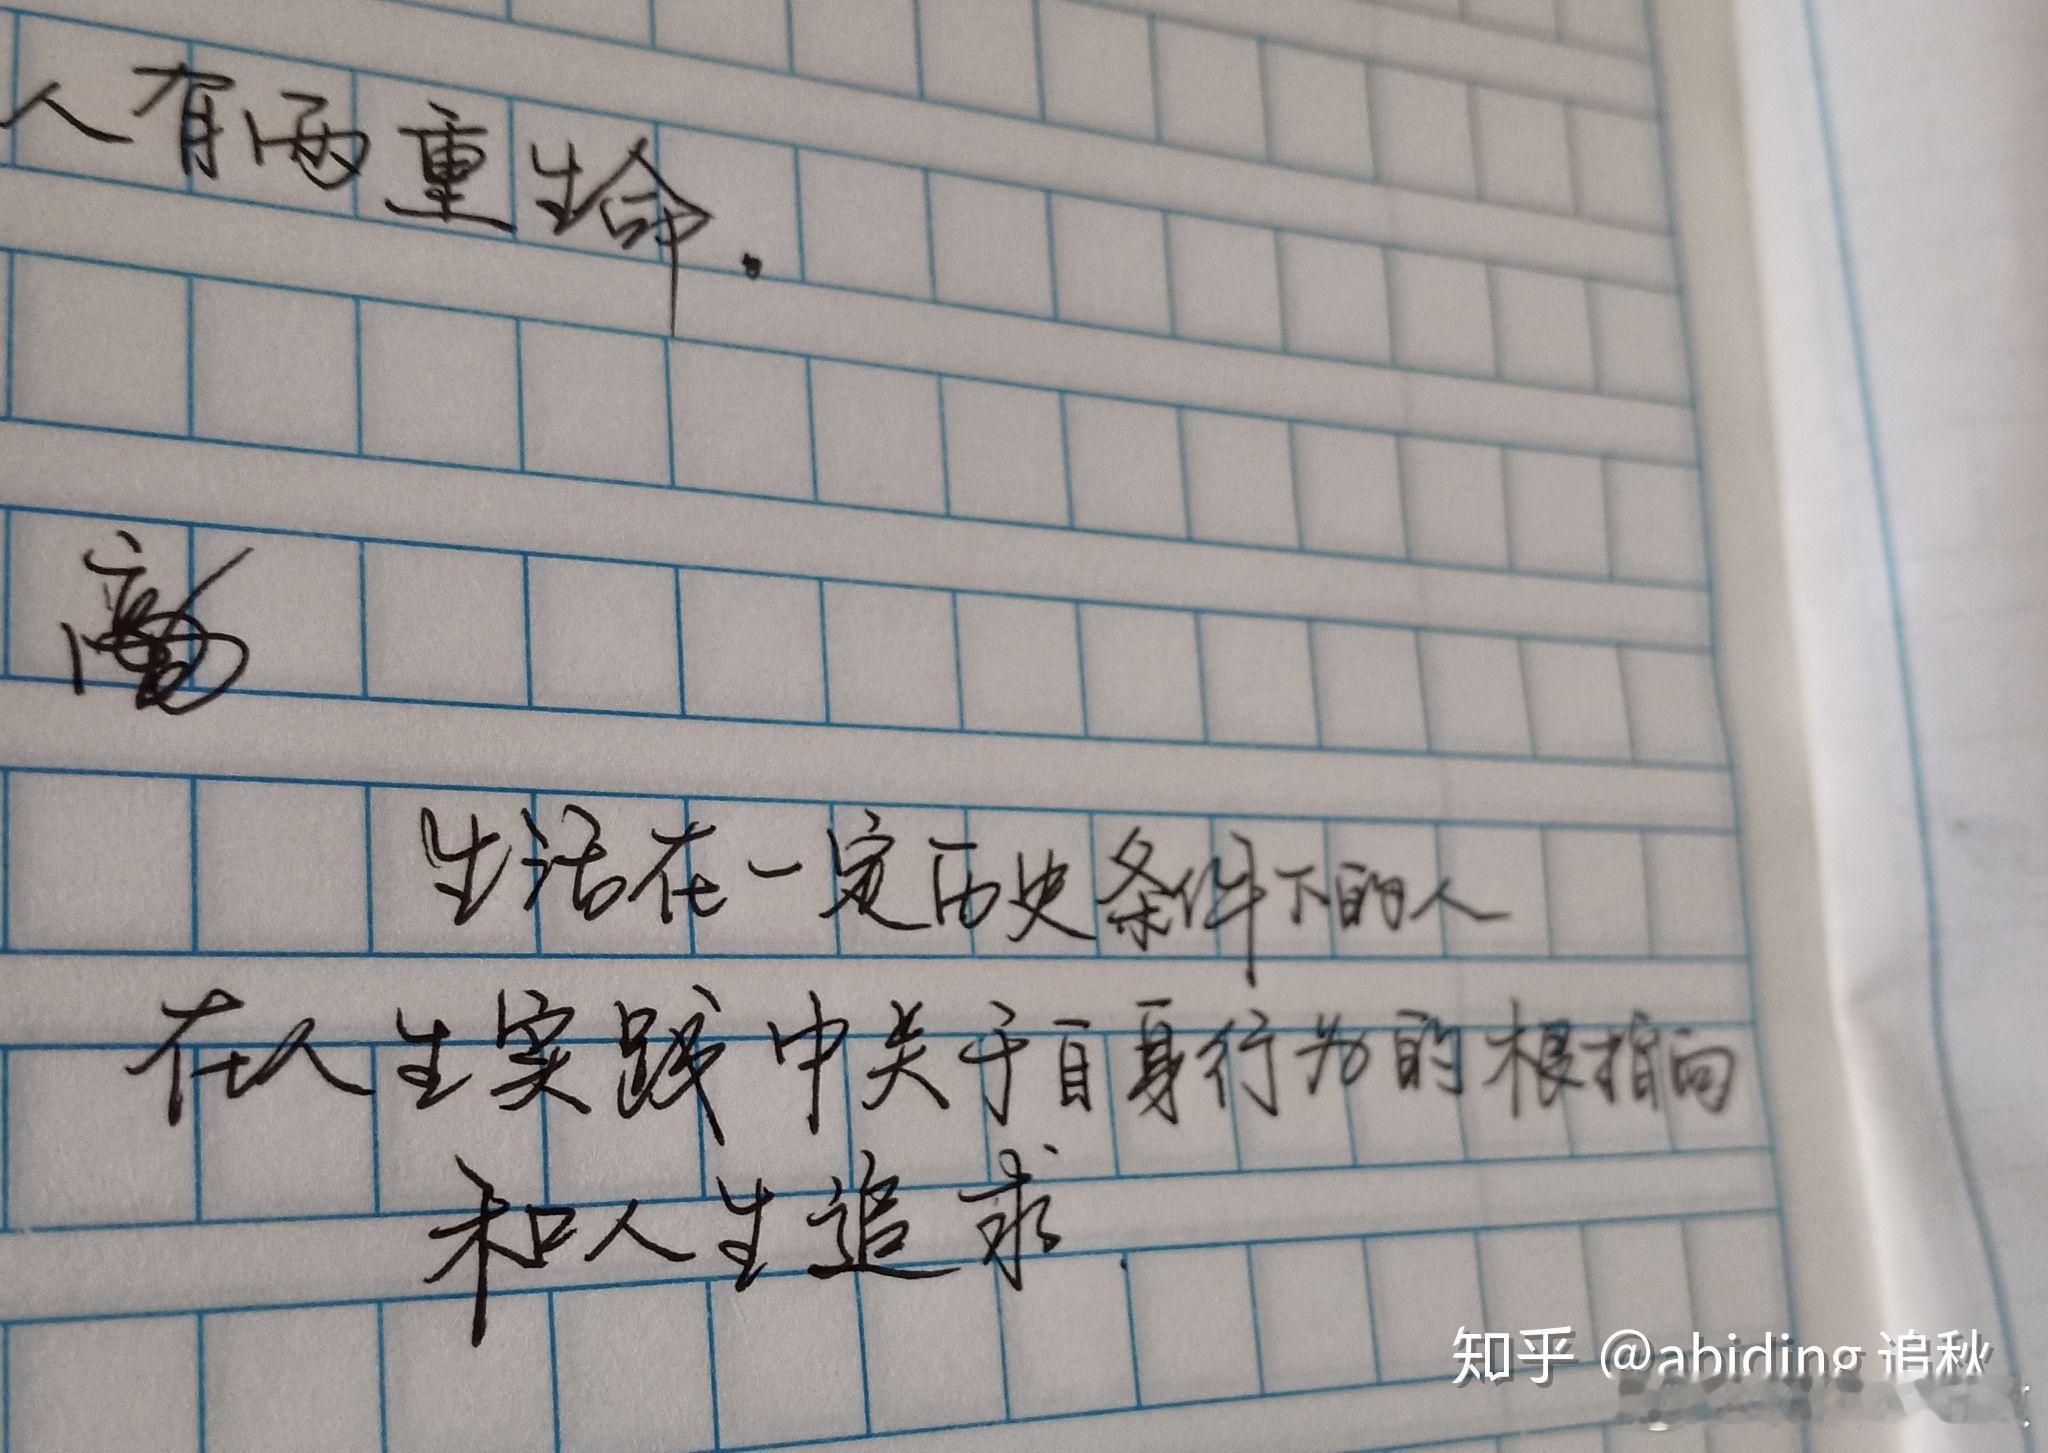 人有两重生命.
生活在一定历史条件下的人
在人生实践中关于自身行为的根指向
和人生追求.
知乎 @abiding 追秋